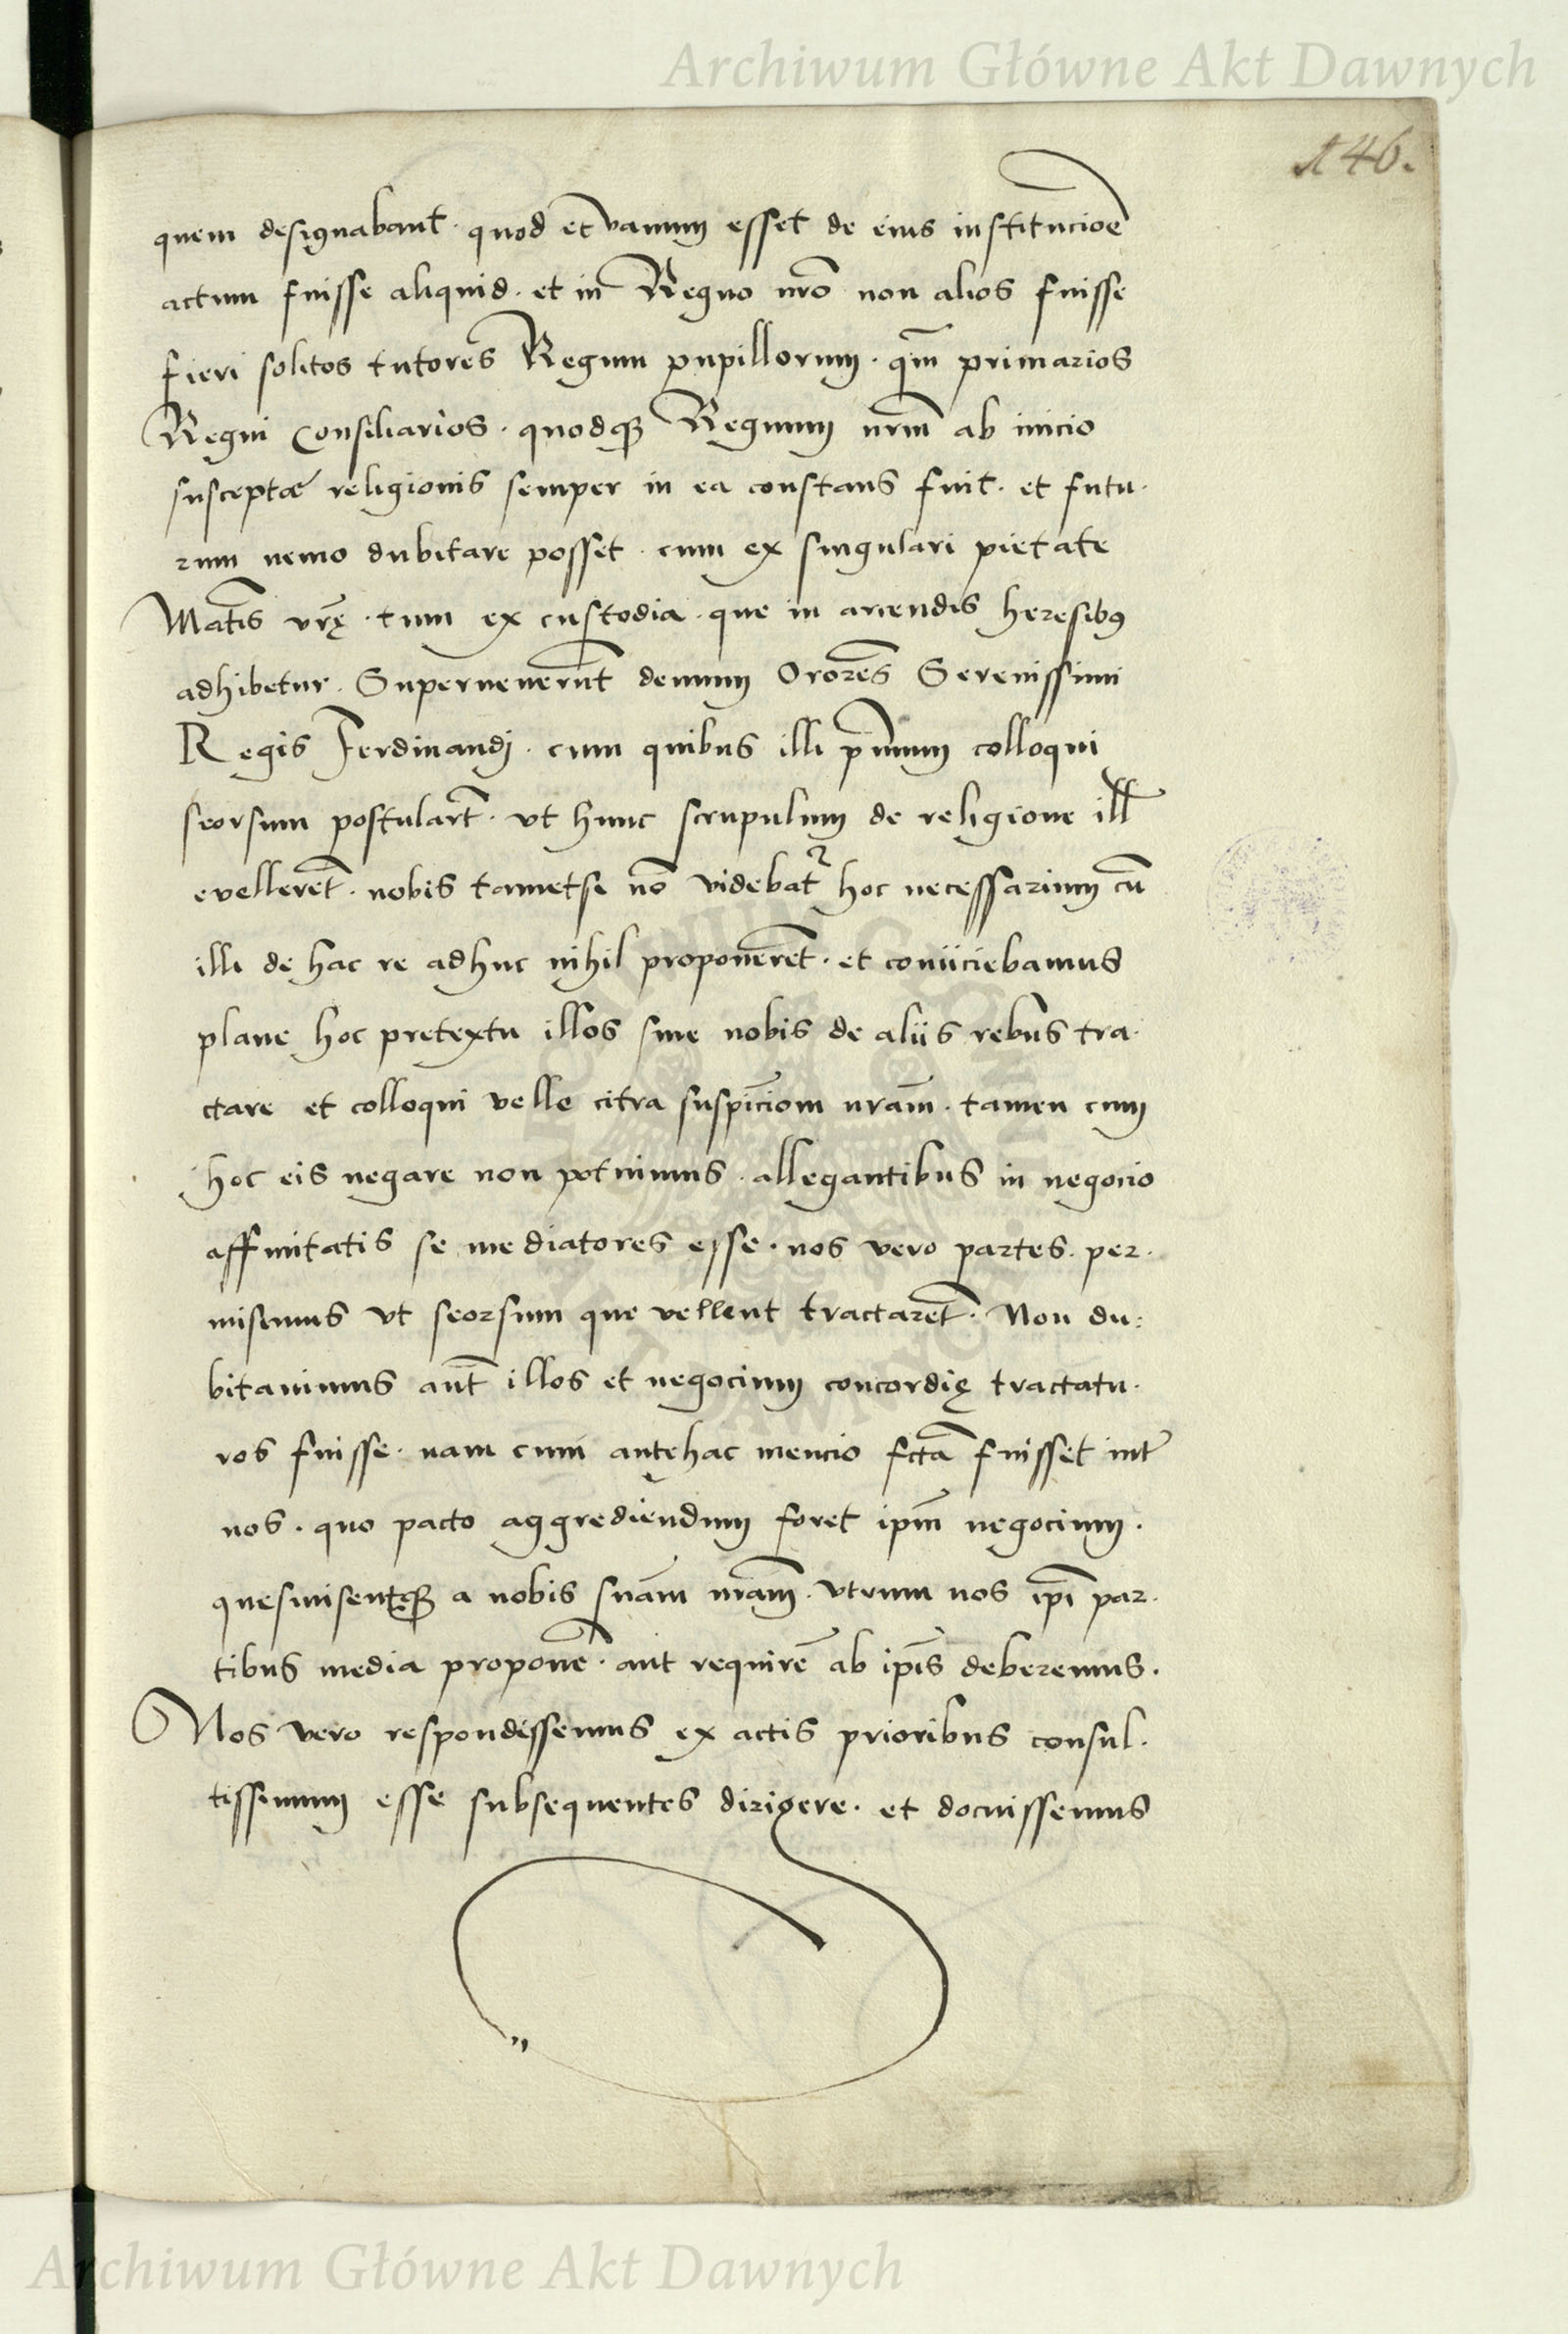 Archiwum Główne Akt Dawnych
146.
quem designabant · quod et vanum esset de eius institucioē
actum fuisse aliquid · et in Regno nr̄o non alios fuisse
fieri solitos tutores Regum pupillorum · qm̄ primarios
Regni Consiliarios · quodqꝫ Regnum nrm̄ ab inicio
susceptæ religionis semper in ea constans fuit · et futu·
rum nemo dubitare posset · cum ex singulari pietate
Matīs vrę̄ · tum ex custodia · que in arcendis heresibꝰ
adhibetur · Supervenerūt demum Ororēs Serenissimi
Regis Ferdinandj · cum quibus illi pr̄mum colloqui
seorsum postulart̄ · vt hunc scrupulum de religione ill̄
evellerēt · nobis tametsi nō videbat̄ hoc necessarium cū
illi de hac re adhuc nihil proponerēt · et coniiciebamus
plane hoc pretextu illos sine nobis de aliis rebus tra·
ctare et colloqui velle citra suspic̄iom nram̄ · tamen cum
hoc eis negare non potuimus · allegantibus in negocio
affinitatis se mediatores esse · nos vero partes · per·
misimus vt seorsum que vellent tractarēt · Non du:
bitavimus aūt illos et negocium concordię tractatu·
ros fuisse · nam cum antęhac mencio fctā fuisset int̄
nos · quo pacto aggrediendum foret ipm̄ negocium ·
quesivisentqꝫ a nobis snām nram̄ · vtrum nos ip̄i par·
tibus media proponē · aut requirē ab ip̄is deberemus ·
Nos vero respondissemus ex actis prioribus consul·
tissimum esse subsequentes dirigere · et docuissemus
Archiwum Główne Akt Dawnych